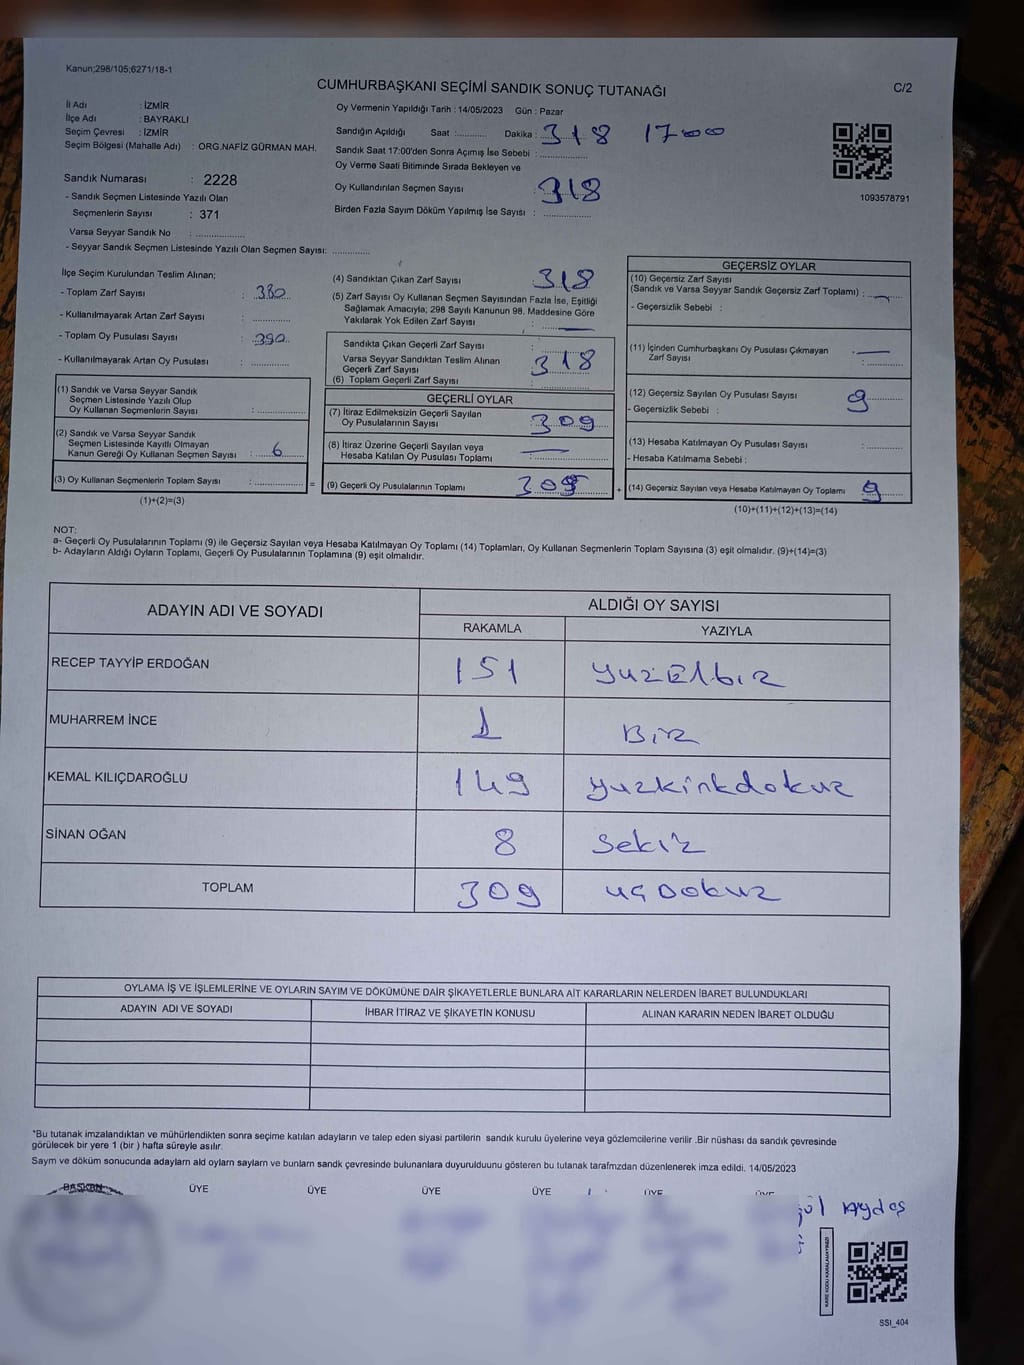 Kanun;298/105;6271/18-1
CUMHURBAŞKANI SEÇİMİ SANDIK SONUÇ TUTANAĞI
C/2
İl Adı : İZMİR
İlçe Adı : BAYRAKLI
Seçim Çevresi : İZMİR
Seçim Bölgesi (Mahalle Adı) : ORG.NAFİZ GÜRMAN MAH.
Sandık Numarası : 2228
- Sandık Seçmen Listesinde Yazılı Olan
Seçmenlerin Sayısı : 371
Varsa Seyyar Sandık No : ..............
- Seyyar Sandık Seçmen Listesinde Yazılı Olan Seçmen Sayısı: ..........
Oy Vermenin Yapıldığı Tarih : 14/05/2023 Gün : Pazar
Sandığın Açıldığı Saat :.......... Dakika : 318 17 00
Sandık Saat 17:00'den Sonra Açımış İse Sebebi : ..............
Oy Verme Saati Bitiminde Sırada Bekleyen ve
Oy Kullandırılan Seçmen Sayısı : 318
Birden Fazla Sayım Döküm Yapılmış İse Sayısı : ..............
1093578791
İlçe Seçim Kurulundan Teslim Alınan;
- Toplam Zarf Sayısı : 380
- Kullanılmayarak Artan Zarf Sayısı : ..........
- Toplam Oy Pusulası Sayısı : 390
- Kullanılmayarak Artan Oy Pusulası : ..........
(1) Sandık ve Varsa Seyyar Sandık
Seçmen Listesinde Yazılı Olup
Oy Kullanan Seçmenlerin Sayısı : ..........
(2) Sandık ve Varsa Seyyar Sandık
Seçmen Listesinde Kayıtlı Olmayan
Kanun Gereği Oy Kullanan Seçmen Sayısı : 6
(3) Oy Kullanan Seçmenlerin Toplam Sayısı : ..........
(1)+(2)=(3)
=
(4) Sandıktan Çıkan Zarf Sayısı 318
(5) Zarf Sayısı Oy Kullanan Seçmen Sayısından Fazla İse, Eşitliği
Sağlamak Amacıyla; 298 Sayılı Kanunun 98. Maddesine Göre
Yakılarak Yok Edilen Zarf Sayısı : —
Sandıkta Çıkan Geçerli Zarf Sayısı :
Varsa Seyyar Sandıktan Teslim Alınan
Geçerli Zarf Sayısı : 318
(6) Toplam Geçerli Zarf Sayısı :
GEÇERLİ OYLAR
(7) İtiraz Edilmeksizin Geçerli Sayılan
Oy Pusulalarının Sayısı : 309
(8) İtiraz Üzerine Geçerli Sayılan veya
Hesaba Katılan Oy Pusulası Toplamı : —
(9) Geçerli Oy Pusulalarının Toplamı : 309
+
GEÇERSİZ OYLAR
(10) Geçersiz Zarf Sayısı
(Sandık ve Varsa Seyyar Sandık Geçersiz Zarf Toplamı) : —
- Geçersizlik Sebebi :
(11) İçinden Cumhurbaşkanı Oy Pusulası Çıkmayan
Zarf Sayısı : —
(12) Geçersiz Sayılan Oy Pusulası Sayısı : 9
- Geçersizlik Sebebi :
(13) Hesaba Katılmayan Oy Pusulası Sayısı : ..........
- Hesaba Katılmama Sebebi :
(14) Geçersiz Sayılan veya Hesaba Katılmayan Oy Toplamı : 9
(10)+(11)+(12)+(13)=(14)
NOT:
a- Geçerli Oy Pusulalarının Toplamı (9) ile Geçersiz Sayılan veya Hesaba Katılmayan Oy Toplamı (14) Toplamları, Oy Kullanan Seçmenlerin Toplam Sayısına (3) eşit olmalıdır. (9)+(14)=(3)
b- Adayların Aldığı Oyların Toplamı, Geçerli Oy Pusulalarının Toplamına (9) eşit olmalıdır.
ADAYIN ADI VE SOYADI
ALDIĞI OY SAYISI
RAKAMLA YAZIYLA
RECEP TAYYİP ERDOĞAN 151 yuzElbir
MUHARREM İNCE 1 Bir
KEMAL KILIÇDAROĞLU 149 yuzkırkdokuz
SİNAN OĞAN 8 Sekiz
TOPLAM 309 uçDokuz
OYLAMA İŞ VE İŞLEMLERİNE VE OYLARIN SAYIM VE DÖKÜMÜNE DAİR ŞİKAYETLERLE BUNLARA AİT KARARLARIN NELERDEN İBARET BULUNDUKLARI
ADAYIN ADI VE SOYADI İHBAR İTİRAZ VE ŞİKAYETİN KONUSU ALINAN KARARIN NEDEN İBARET OLDUĞU
*Bu tutanak imzalandıktan ve mühürlendikten sonra seçime katılan adayların ve talep eden siyasi partilerin sandık kurulu üyelerine veya gözlemcilerine verilir .Bir nüshası da sandık çevresinde
görülecek bir yere 1 (bir ) hafta süreyle asılır.
Saym ve döküm sonucunda adaylarn ald oylarn saylarn ve bunlarn sandk çevresinde bulunanlara duyurulduunu gösteren bu tutanak tarafmzdan düzenlenerek imza edildi. 14/05/2023
BAŞKAN ÜYE ÜYE ÜYE ÜYE ÜYE ÜYE
gül Aydaş
KARE KODU KARALAMAYINIZ!
SSI_404